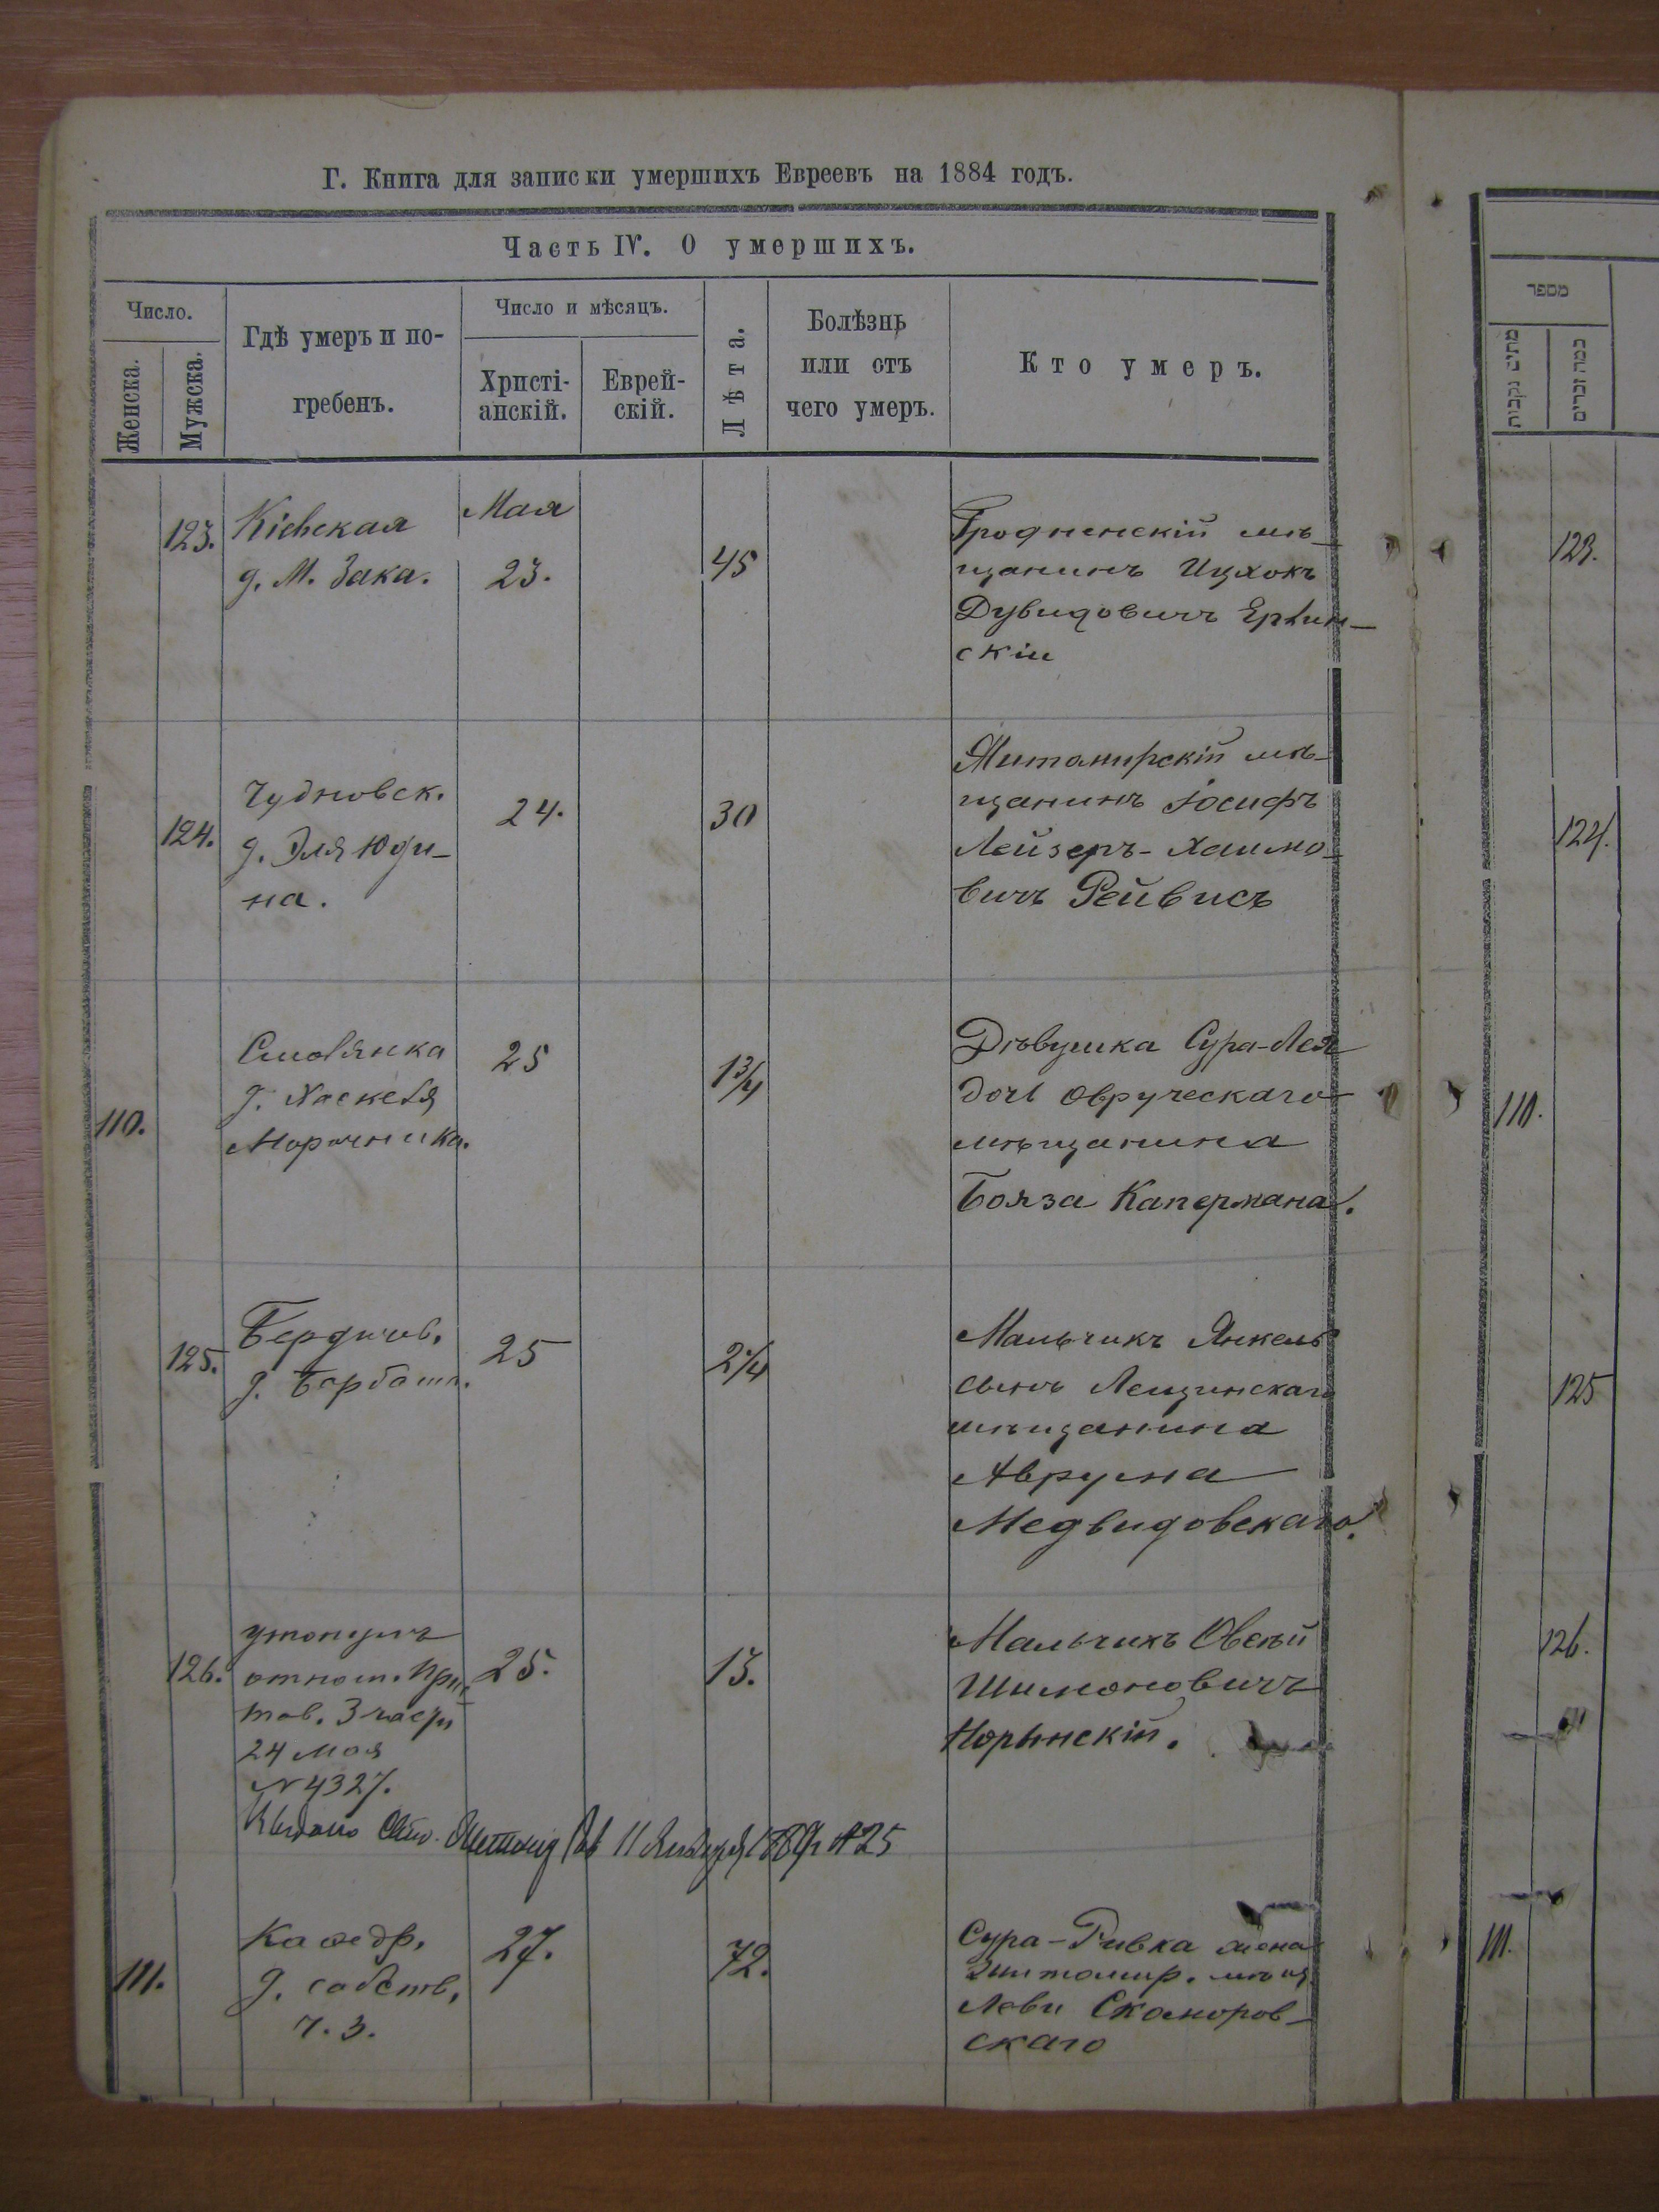 Г. Книга для записки умершихъ Евреевъ на 1884 годъ.
Часть IV. О умершихъ.
Число.
Женска.
Мужска.
Гдѣ умеръ и по-
гребенъ.
Число и мѣсяцъ.
Христі-
анскій.
Еврей-
скій.
Лѣта.
Болѣзнь
или отъ
чего умеръ.
Кто умеръ.
123.
Кіевская
д. М. Зака.
Мая
23.
45
Гродненскій мѣ-
щанинъ Ицхокъ
Дувидовичъ
скій
124.
Чудновск.
д. Эля Юди-
на.
24.
30
Житомирскій мѣ-
щанинъ Іосифъ
Лейзеръ-Хаимо-
вичъ Рейвисъ
110.
Смолянка
д. Хаскеля
Морочника.
25
1 3/4
Дѣвушка Сура-Лея
дочь Овручскаго
мѣщанина
Бояза Капермана.
125.
Бердичов.
д.
25
2 1/4
Мальчикъ Янкель
сынъ Лещинскаго
мѣщанина
Аврума
Медвидовскаго.
126.
утонулъ
отнош. Прис
тав. 3 части
24 Мая
N 4327.
25.
13.
Мальчикъ Овсѣй
Шимоновичъ
Норынскій.
Выдано 11 Января N 25
111.
Каѳедр.
д. собств.
ч. 3.
27.
72.
Сура-Ривка жена
Житомир. мѣщ.
Леви Скоморов-
скаго
מספר
כמה זכרים
123.
124.
110.
125
126.
111.